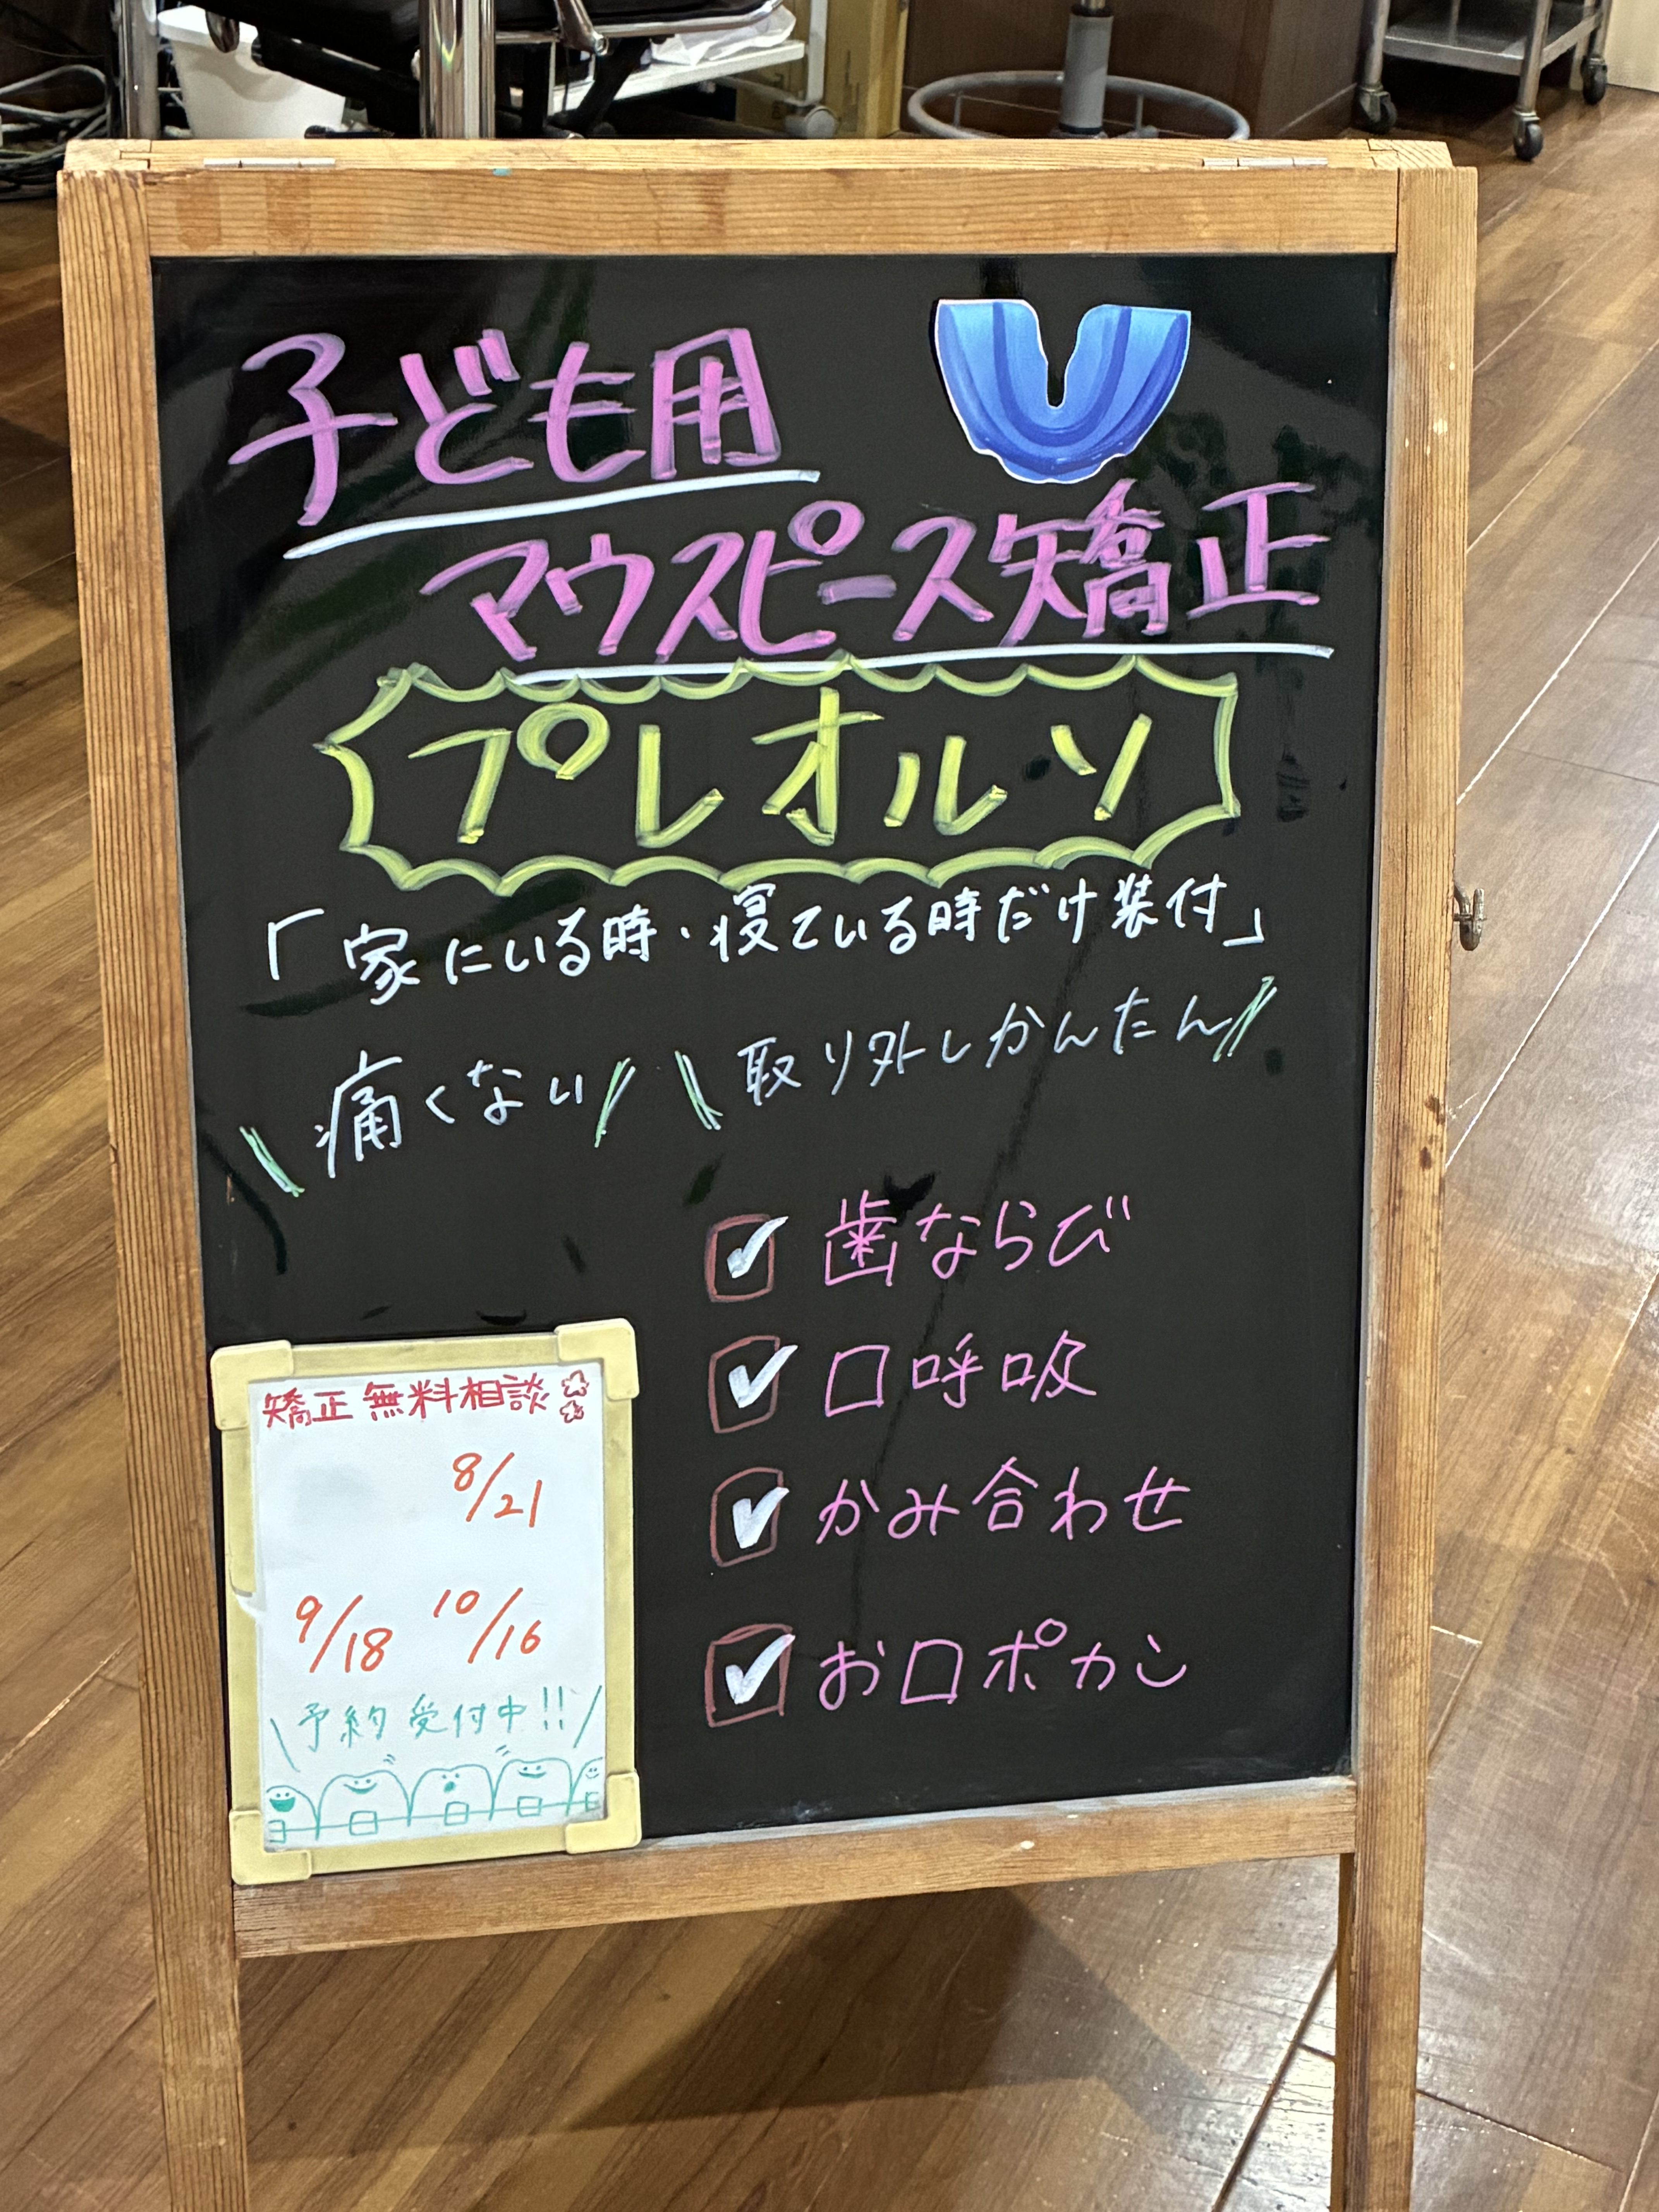 子ども用
マウスピース矯正
プレオルソ
「家にいる時・寝ている時だけ装付」
\ 痛くない / \ 取り外しかんたん /
☑ 歯ならび
☑ 口呼吸
☑ かみ合わせ
☑ お口ポカン
矯正無料相談
8/21
9/18 10/16
\ 予約受付中!! /